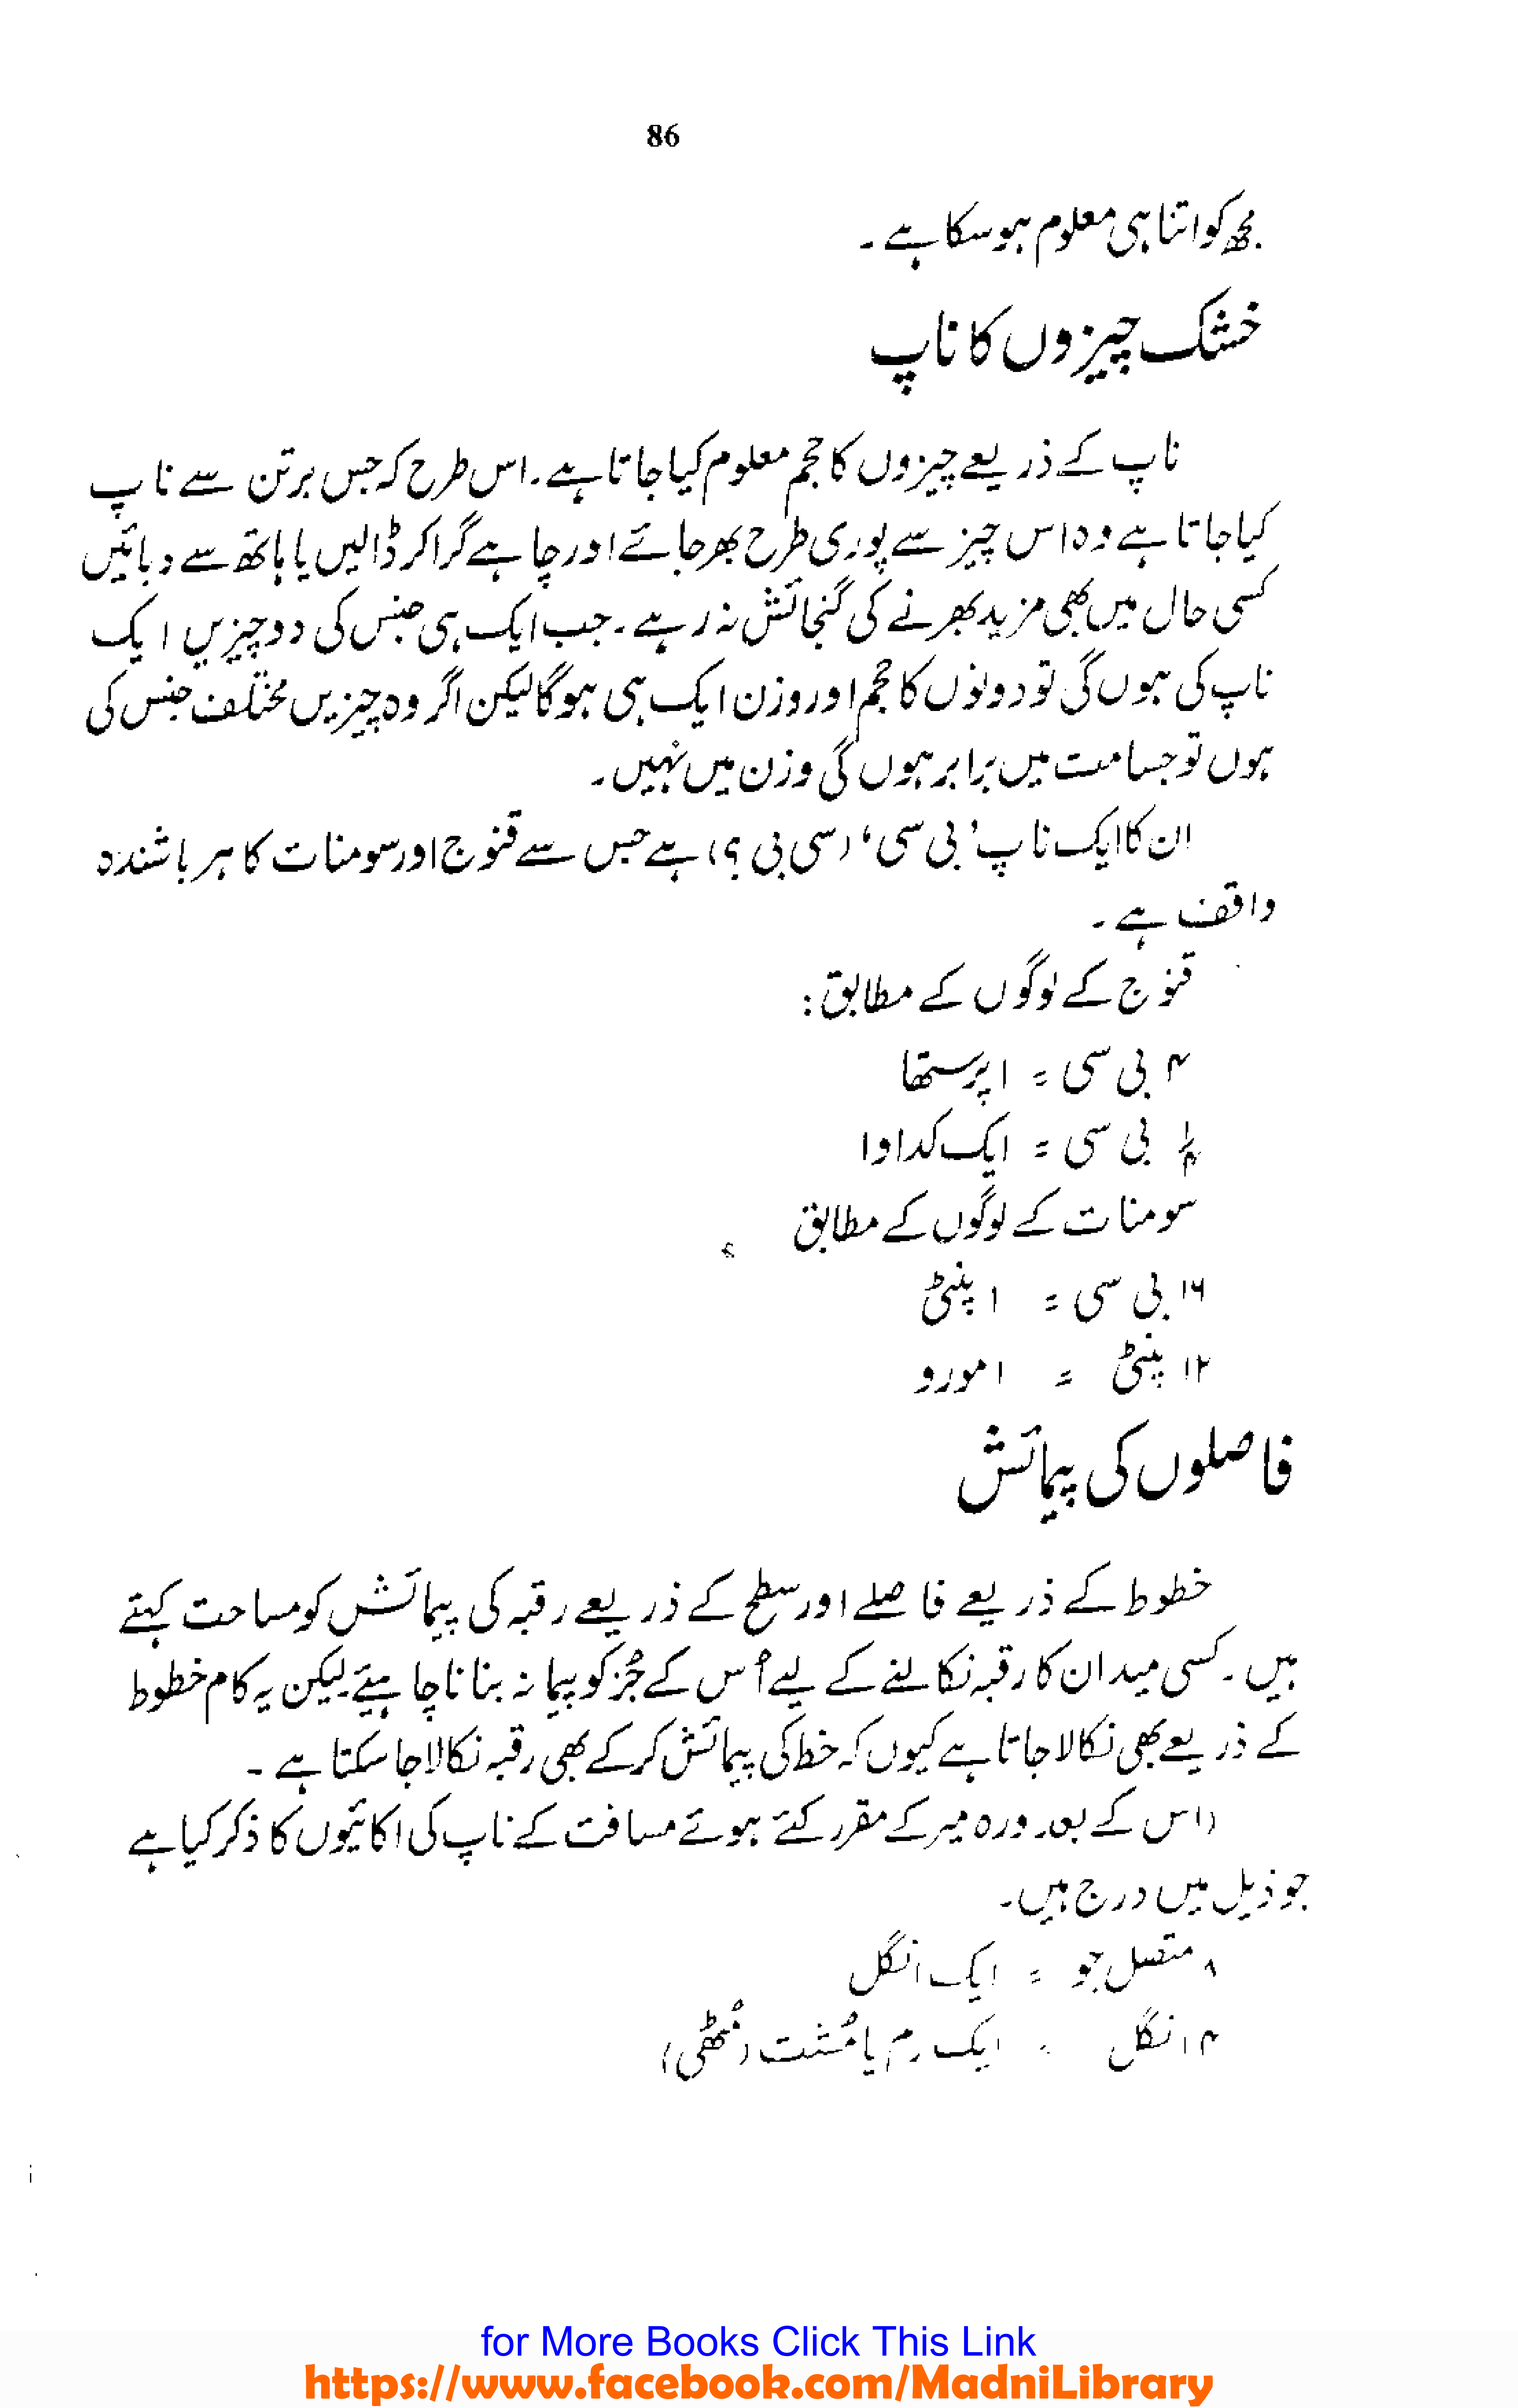 86
مجھ کو اتنا ہی معلوم ہو سکا ہے ۔
خشک چیزوں کا ناپ
ناپ کے ذریعے چیزوں کا حجم معلوم کیا جاتا ہے۔ اس طرح کہ جس برتن سے ناپ
کیا جاتا ہے وہ اس چیز سے پوری طرح بھر جائے اور چاہے گرا کر ڈالیں یا ہاتھ سے دبائیں
کسی حال میں بھی مزید بھرنے کی گنجائش نہ رہے ۔ جب ایک ہی جنس کی دو چیزیں ایک
ناپ کی ہوں گی تو دونوں کا حجم اور وزن ایک ہی ہوگا لیکن اگر وہ چیزیں مختلف جنس کی
ہوں تو جسامت میں برابر ہوں گی وزن میں نہیں ۔
ان کا ایک ناپ 'بی سی' (سی بی ؟) ہے جس سے قنوج اور سومنات کا ہر باشندہ
واقف ہے ۔
قنوج کے لوگوں کے مطابق :
۴ بی سی = ۱ پرستھا
۱/۴ بی سی = ایک کداوا
سومنات کے لوگوں کے مطابق ؟
۱۶ بی سی = ۱ پنٹی
۱۲ پنٹی = ۱ مورو
فاصلوں کی پیمائش
خطوط کے ذریعے فاصلے اور سطح کے ذریعے رقبہ کی پیمائش کو مساحت کہتے
ہیں ۔ کسی میدان کا رقبہ نکالنے کے لیے اُس کے جُز کو پیمانہ بنانا چاہیئے۔ لیکن یہ کام خطوط
کے ذریعے بھی نکالا جاتا ہے کیوں کہ خط کی پیمائش کر کے بھی رقبہ نکالا جا سکتا ہے ۔
(اس کے بعد ورہ میر کے مقرر کئے ہوئے مسافت کے ناپ کی اکائیوں کا ذکر کیا ہے
جو ذیل میں درج ہیں۔
۸ متصل جو = ایک انگل
۴ انگل = ایک رم یا مُشت (مُٹھی)
for More Books Click This Link
https://www.facebook.com/MadniLibrary